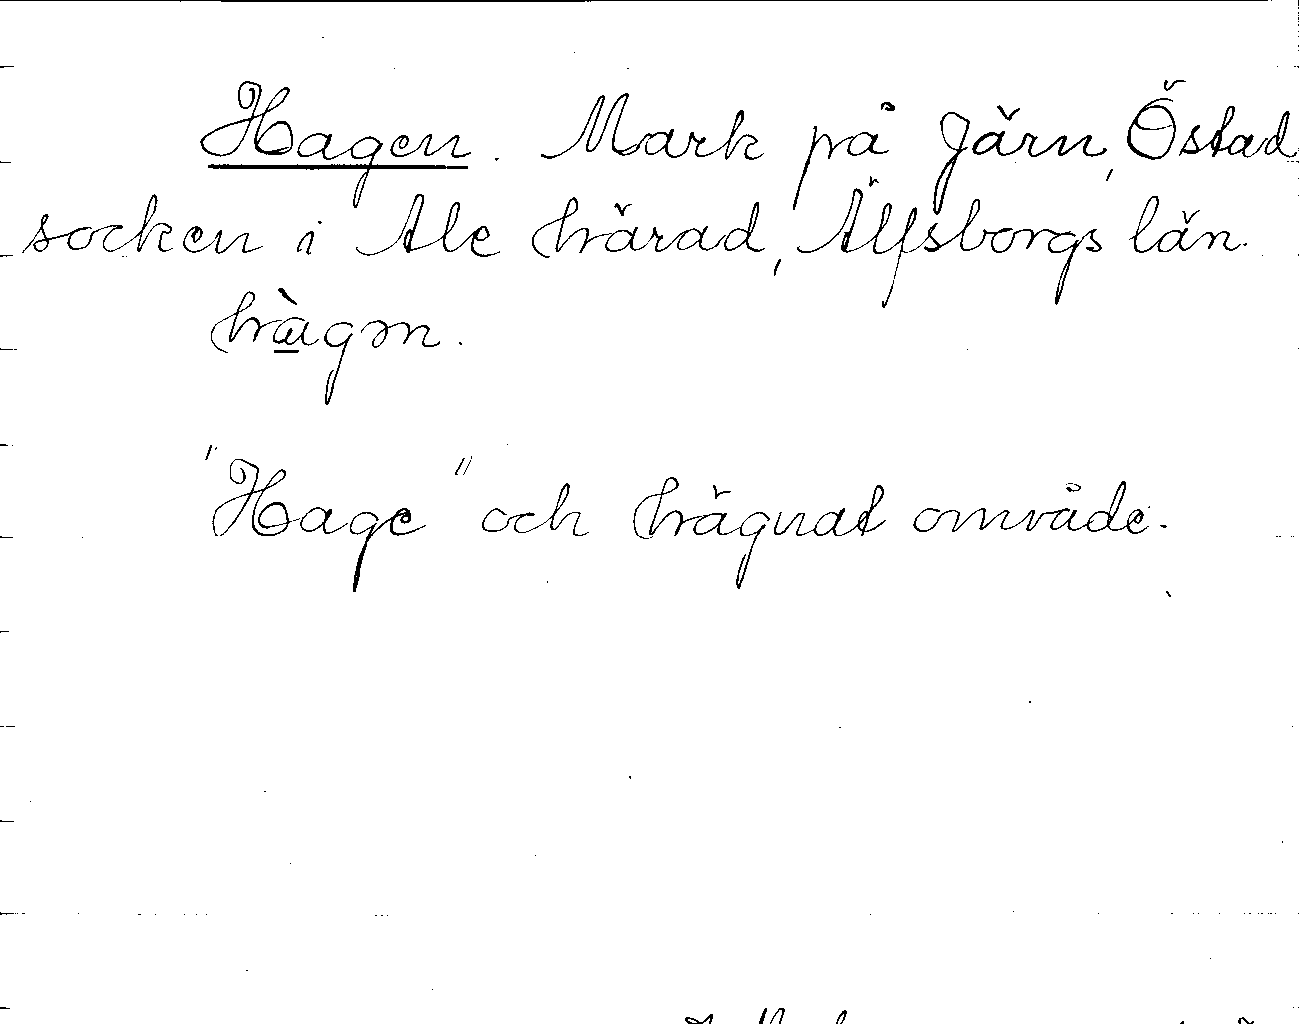 Hagen. Mark på Järn, Östad
socken i Ale härad, Älfsborgs län.
hàgɔn.
"Hage" och hägnat område.